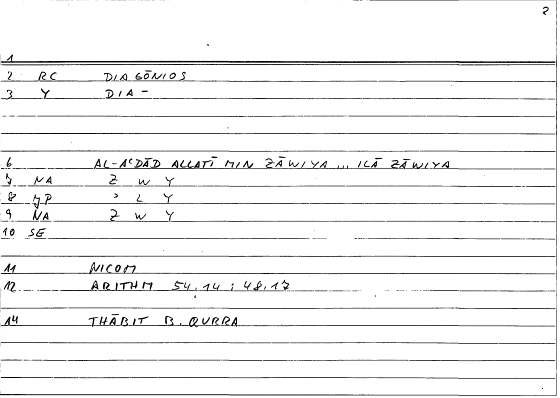 2
1
2 RC DIAGŌNIOS
3 Y DIA-
6 AL-AʿDĀD ALLATĪ MIN ZĀWIYA ... ILĀ ZĀWIYA
7 NA Z W Y
8 YP ʾ L Y
9 NA Z W Y
10 SE
11 NICOM
12 ARITHM 54.14 ; 48.17
14 THĀBIT B. QURRA